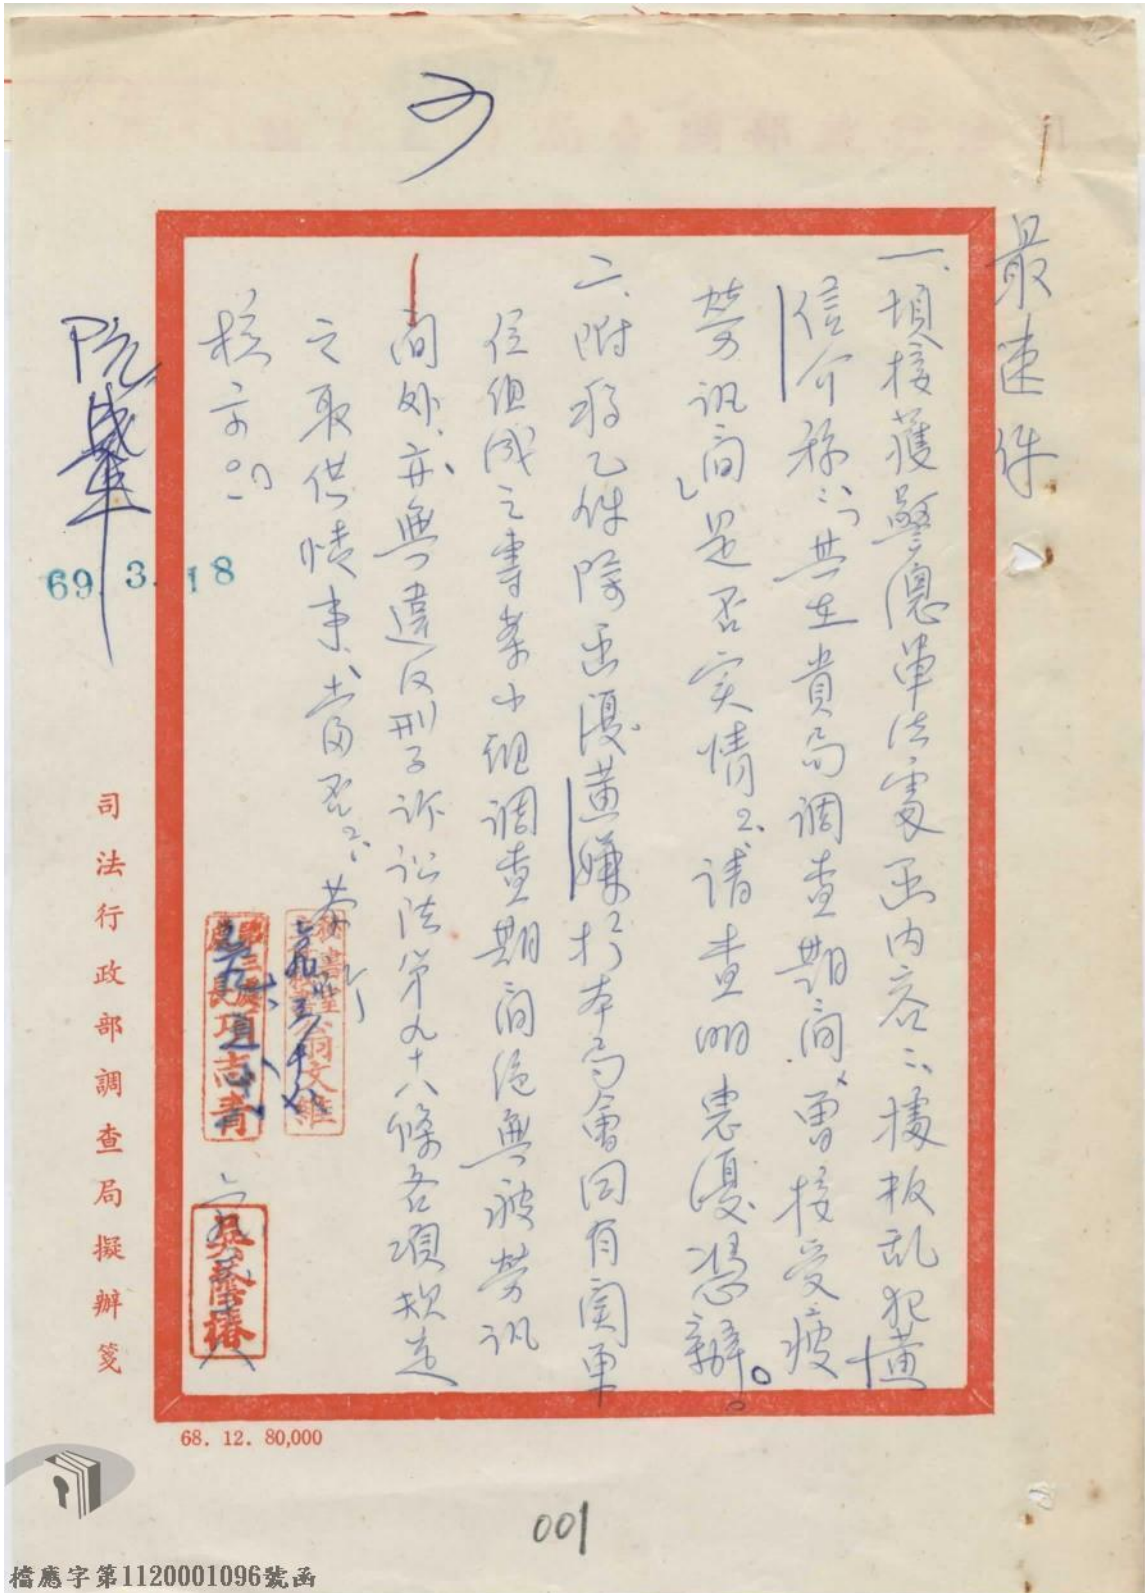 最速件
一、頃接獲警總軍法處函內容:1.據叛乱犯黃
信介称:「其在貴局調查期間、曾接受疲
勞訊問」是否实情。2.請查明惠復憑辦。
二、附稿乙件除函復黃嫌於本局會同有関單
位組成之專案小組調查期間絕無疲勞訊
問外、亦無違反刑事訴訟法第九十八條各項規定
之取供情事、當否?恭請
核示。
可
阮成章
69. 3. 18
第三處處長項志青
吳蔭椿
司法行政部調查局擬辦箋
68. 12. 80,000
001
檔應字第1120001096號函